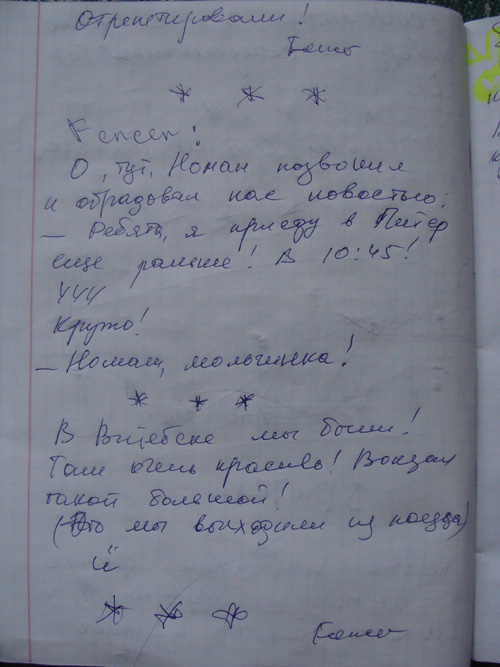 Отрепетировали!
* * *
О, тут, Номан позвонил
и обрадовал нас новостью:
— Ребята, я приеду в Питер
еще раньше! В 10:45!
ууу
Круто!
— Номан, молъчинка!
* * *
В Витебске мы были!
Там очень красиво! Вокзал
такой большой!
мы выходили из поезда)
* * *